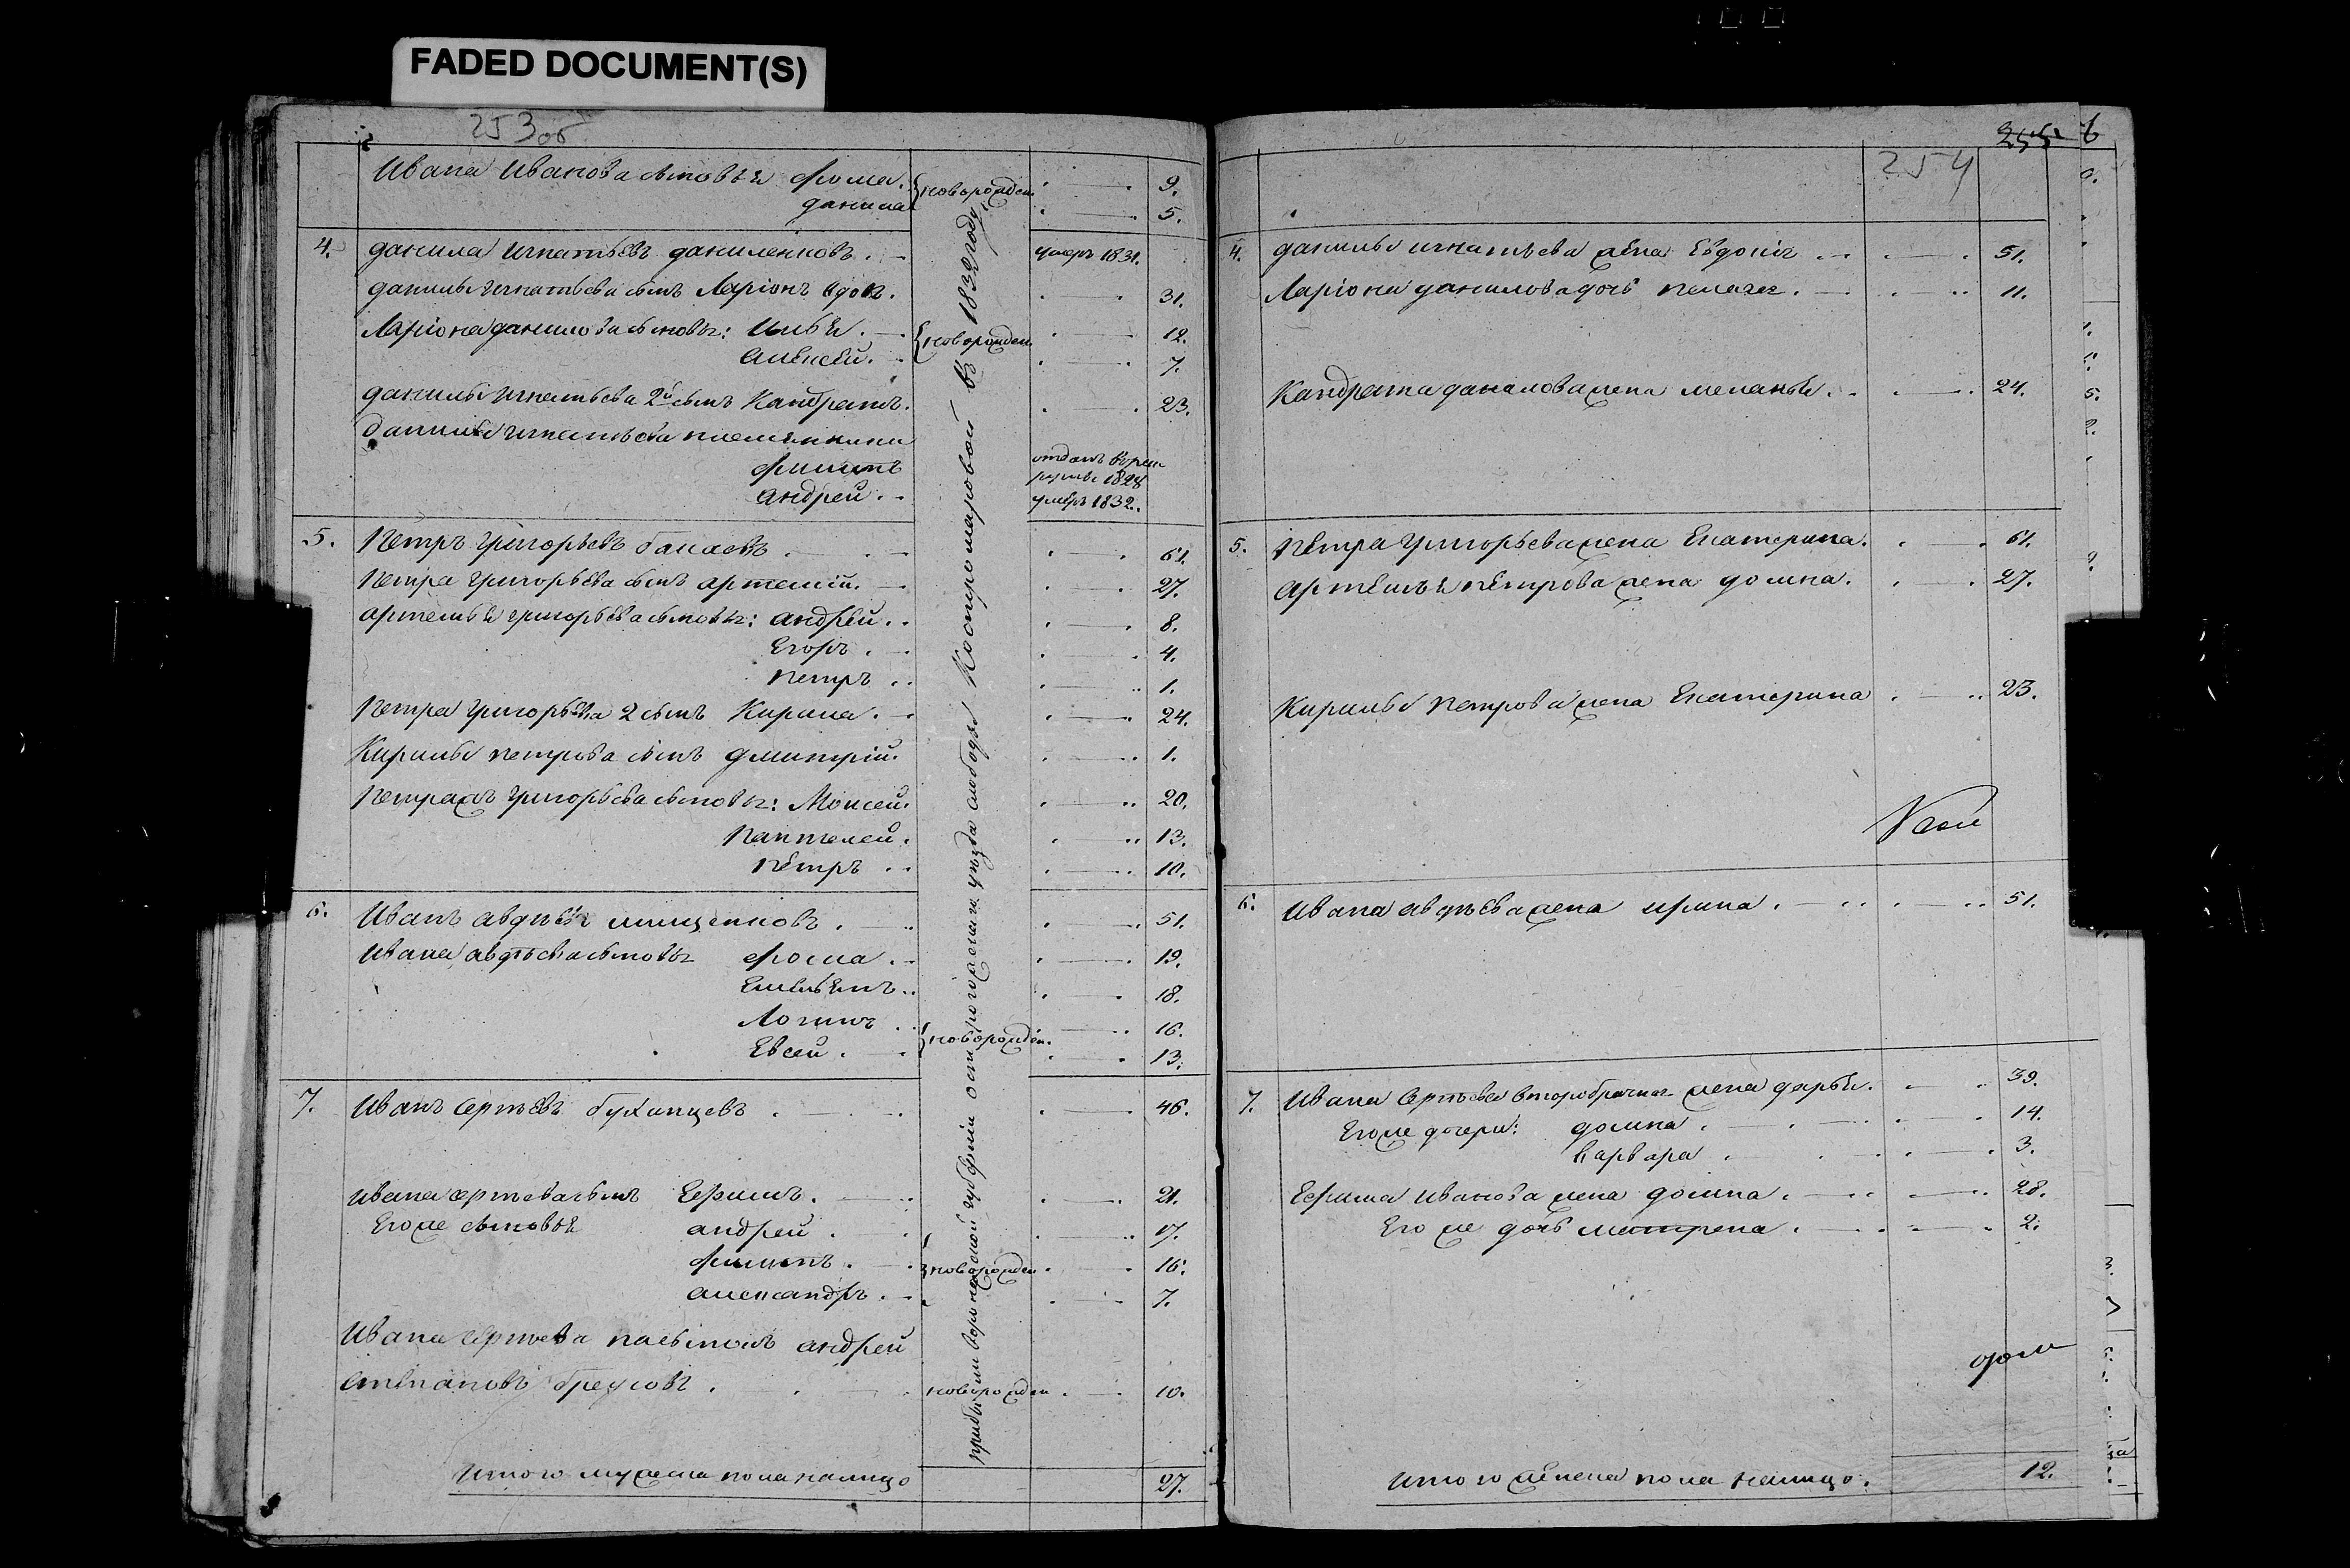 FADED DOCUMENT(S)
253 об
Ивана Иванова сыновья Фома. новорожден. 9.
данила 5.
4. данила Игнатьевъ даниленковъ. умеръ 1831.
данилы Игнатьева сынъ Ларіонъ вдовъ. 31.
Ларіона данилова сыновьѧ: Илья. новорожден. 12.
Алексей. 7.
данилы Игнатьева 2й сынъ Кандратъ. 23.
данилы Игнатьева племянники
Филипъ отданъ в рек
руты 1828
андрей. умеръ 1832.
5. Петръ Григорьевъ 61.
Петра Григорьева сынъ артемій. 27.
артемья григорьева сыновья: андрей. 8.
Егоръ. 4.
петръ 1.
Петра Григорьева 2 сынъ Кирила. 24.
Кирилы петрова сынъ дмитрій. 1.
Петра жъ Григорьева сыновья: Моисей. 20.
Пантелей. 13.
Петръ 10.
6. Иванъ авдѣевъ мищенковъ. 51.
Ивана авдѣева сыновья Фома. 19.
Емельянъ 18.
Логинъ новорожден. 16.
Евсей. 13.
7. Иванъ Сергѣевъ буханцевъ 46.
Ивана Сергѣева сынъ Ефимъ. 21.
Его же сыновья андрей. 17.
Филипъ. новорожден. 16.
александръ. 7.
Ивана Сергѣева пасынокъ андрей
Степановъ новорожден. 10.
Итого мужеска пола налицо 27.
прибыли воронежской губерніи острогожскаго уѣзда слободы Костромаровой въ 1832 году
255 6
254
4. данилы игнатьева жена Евдокія 51.
Ларіона данилова дочь пелагея. 11.
Кандрата данилова жена меланья. 24.
5. Петра Григорьева жена Екатерина. 61.
Артемья петрова жена домна. 27.
Кирилы петрова жена Екатерина 23.
6. Ивана авдѣева жена ирина. 51.
7. Ивана Сергѣева второбрачная жена дарья. 39.
Его же дочери: домна. 14.
варвара 3.
Ефима иванова жена домна. 28.
Его же дочь матрена. 2.
Итого женска пола налицо. 12.